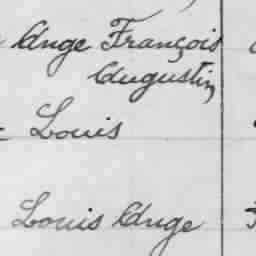 Ange François
Augustin
Louis
Louis Ange